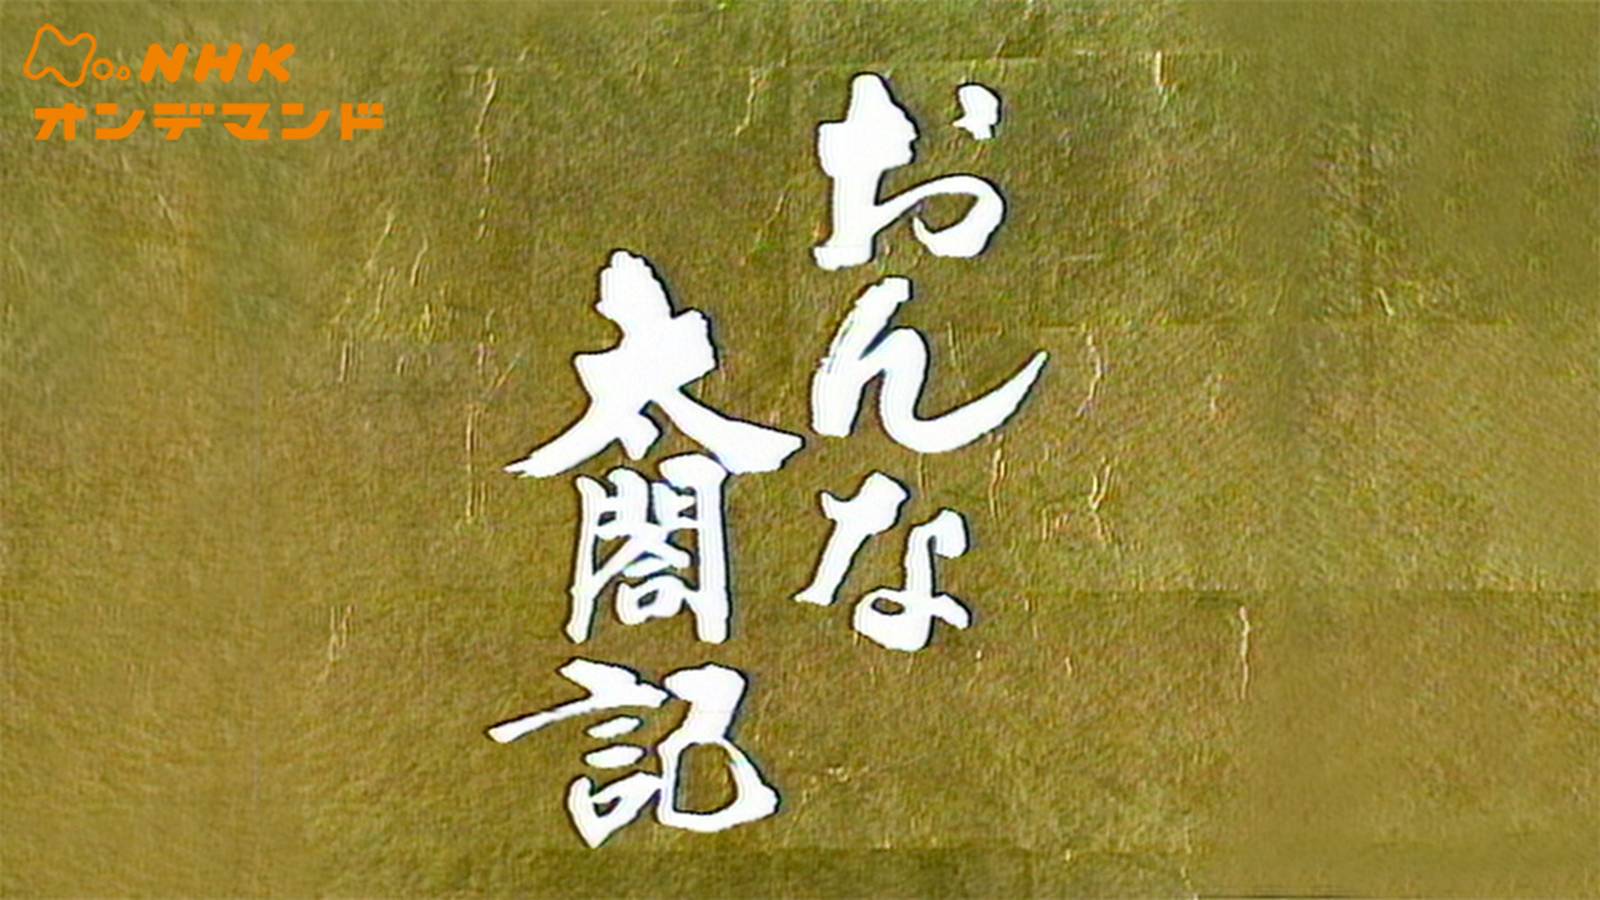 NHK
オンデマンド
おんな
太閤記